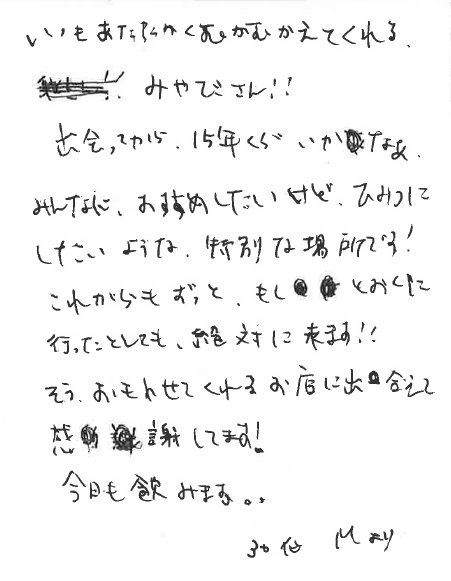 いつもあたたかくむかむかえてくれる、
みやびさん!!
出会ってから、15年くらいかなぁ、
みんなに、おすすめしたいけど、ひみつに
したいような、特別な場所です!
これからもずっと、もし とおくに
行ったとしても、絶対に来ます!!
そう、おもわせてくれるお店に出会えて
感謝してます!
今日も飲みます。。
30代 Mより